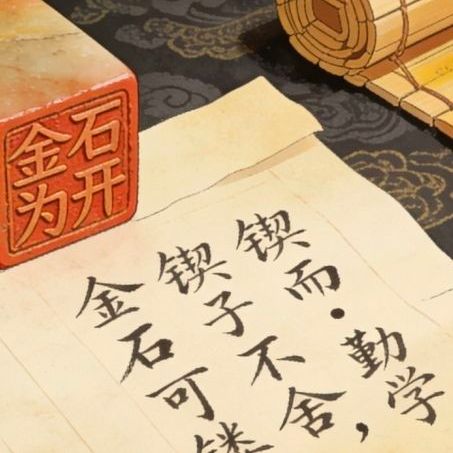 金石
为开
锲而·勤学
锲子不舍，
金石可镂